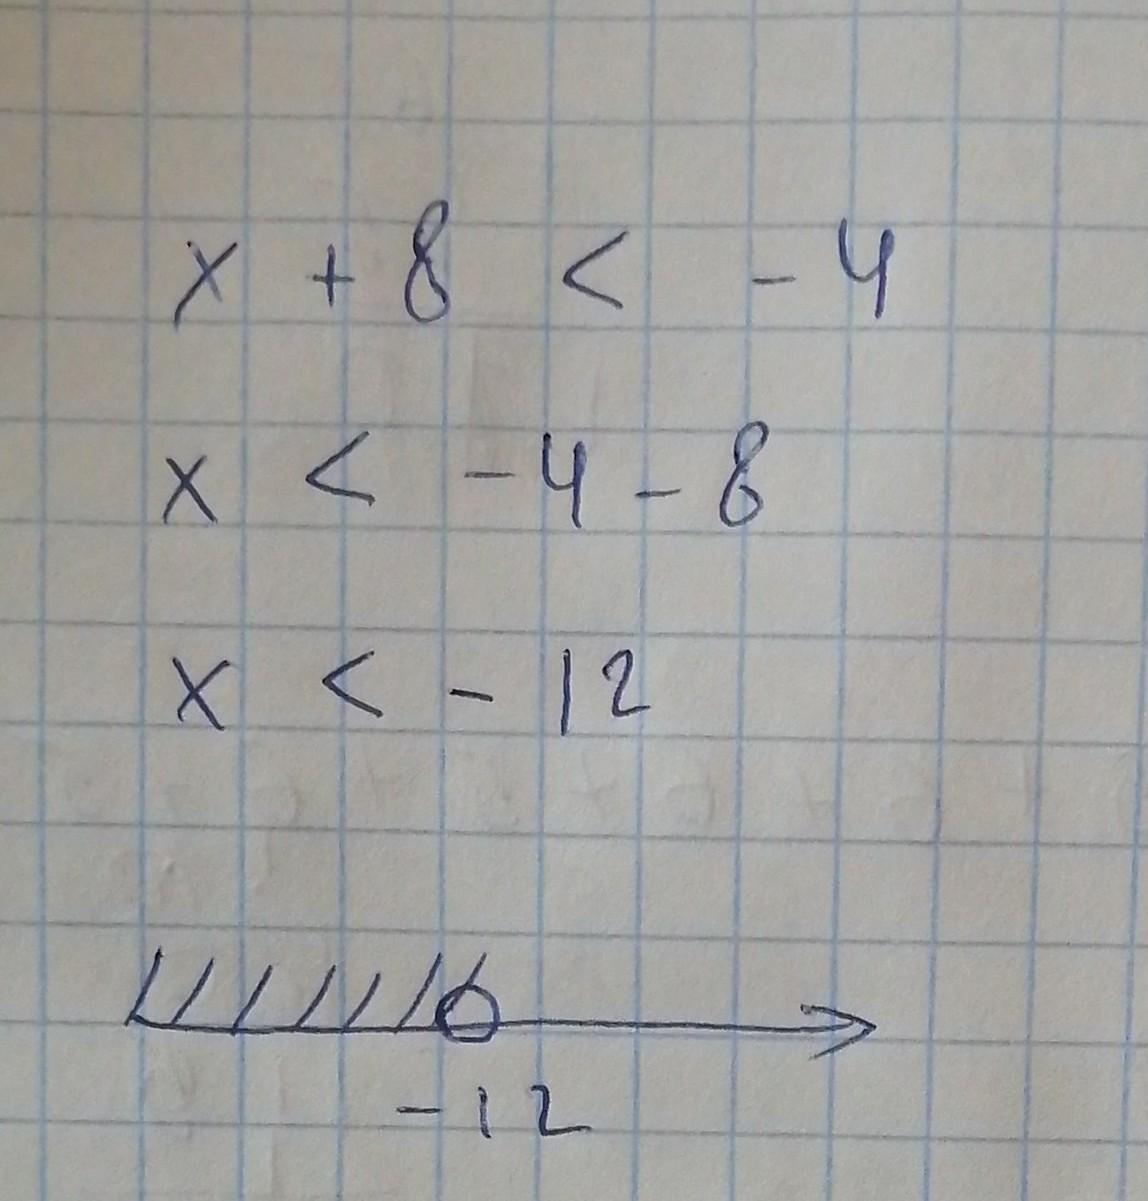 x + 8 < - 4
x < - 4 - 8
x < - 12
- 12